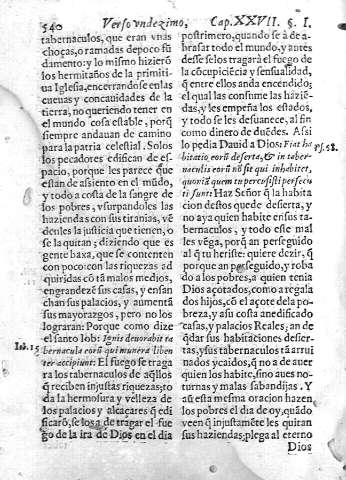 540 Verso vndezimo, Cap. XXVII. §. I.
tabernaculos, que eran vnas
choças, o ramadas de poco fũ
damento: y lo mismo hizierõ
los hermitaños de la primiti-
ua Iglesia, encerrandose en las
cueuas y concauidades de la
tierra, no queriendo tener en
el mundo cosa estable, porq̃
siempre andauan de camino
para la patria celestial. Solos
los pecadores edifican de es-
pacio, porque les parece que
estan de assiento en el mũdo,
y todo a costa de la sangre de
los pobres, vsurpandoles las
haziendas con sus tiranias, vẽ
denles la justicia que tienen, o
se la quitan; diziendo que es
gente baxa, que se contenten
con poco: con las riquezas ad-
quiridas cõ tã malos medios,
engrandecẽ sus casas, y ensan
chan sus palacios, y aumentã
sus mayorazgos, pero no los
lograran: Porque como dize
el santo Iob: Ignis deuorabit ta
Iob. 15 bernacula eorũ qui munera liben
ter accipiunt: El fuego se traga
ra los tabernaculos de aq̃llos
q̃ reciben injustas riquezas; to
da la hermosura y velleza de
los palacios y alcaçares q̃ edi
ficarõ, se los a de tragar el fue-
go de la ira de Dios en el dia
postrimero, quando se à de a-
brasar todo el mundo, y antes
desse se los tragará el fuego de
la cõcupiscẽcia y sensualidad,
q̃ entre ellos anda encendido;
el qual las consume las haziẽ-
das, y les empeña los estados,
y todo se les desuanece, al fin
como dinero de duẽdes. Assi
lo pedia Dauid a Dios: Fiat ha
bitatio eorũ deserta, & in taber- ps. 68.
naculis eorũ nõ sit qui inhabitet,
quoniã quem tu percusisti persecu
ti sunt: Haz Señor q̃ la habita
cion destos quede desierta, y
no aya quien habite en sus ta-
bernaculos, y todo este mal
les vẽga, porq̃ an perseguido
al q̃ tu heriste: quiere dezir, q̃
porque an perseguido, y roba
do a los pobres, a quien tenia
Dios açotados, como a regala
dos hijos, cõ el açote de la po
breza, y a su costa an edificado
casas, y palacios Reales; an de
q̃dar sus habitaciones desier-
tas, y sus tabernaculos tã arrui
nados y caidos, q̃ no a de auer
quien los habite, sino aues no-
turnas y malas sabandijas. Y
aũ esta mesma oracion hazen
los pobres el dia de oy, quãdo
veen q̃ injustamẽte les quitan
sus haziendas; plega al eterno
Dios